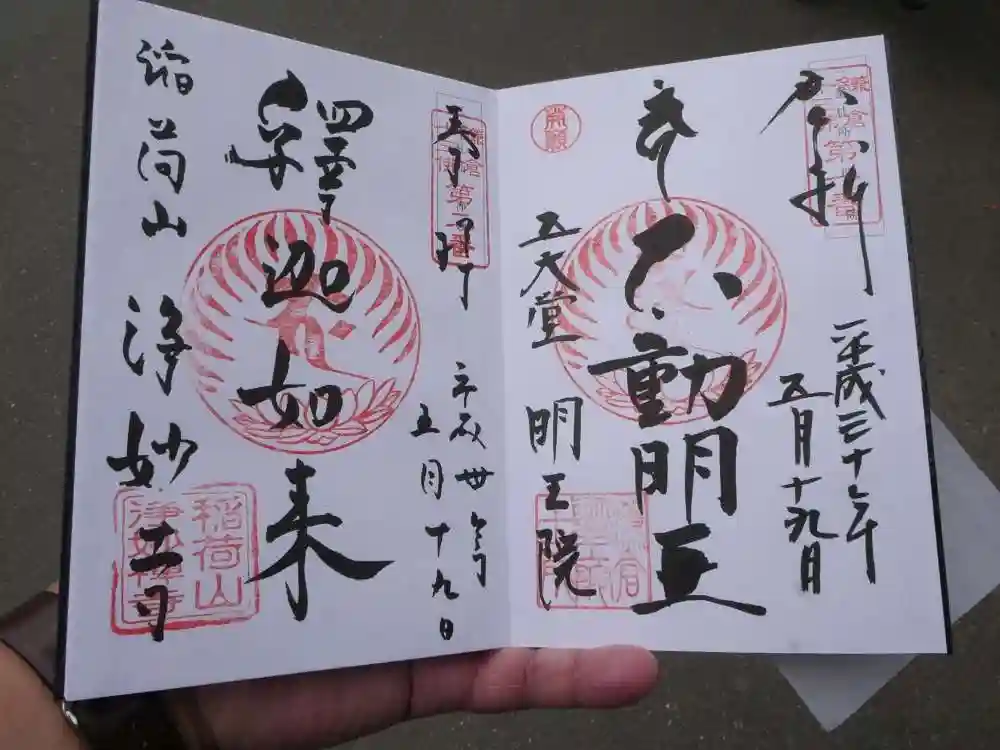 鎌倉
第十番
奉拝
平成三十年
五月十九日
奉
不動明王
五大堂
明王院
鎌倉
第二番
天下所
平成卅年
五月十九日
釋迦如来
稲荷山
浄妙寺
稲荷山
浄妙禅寺